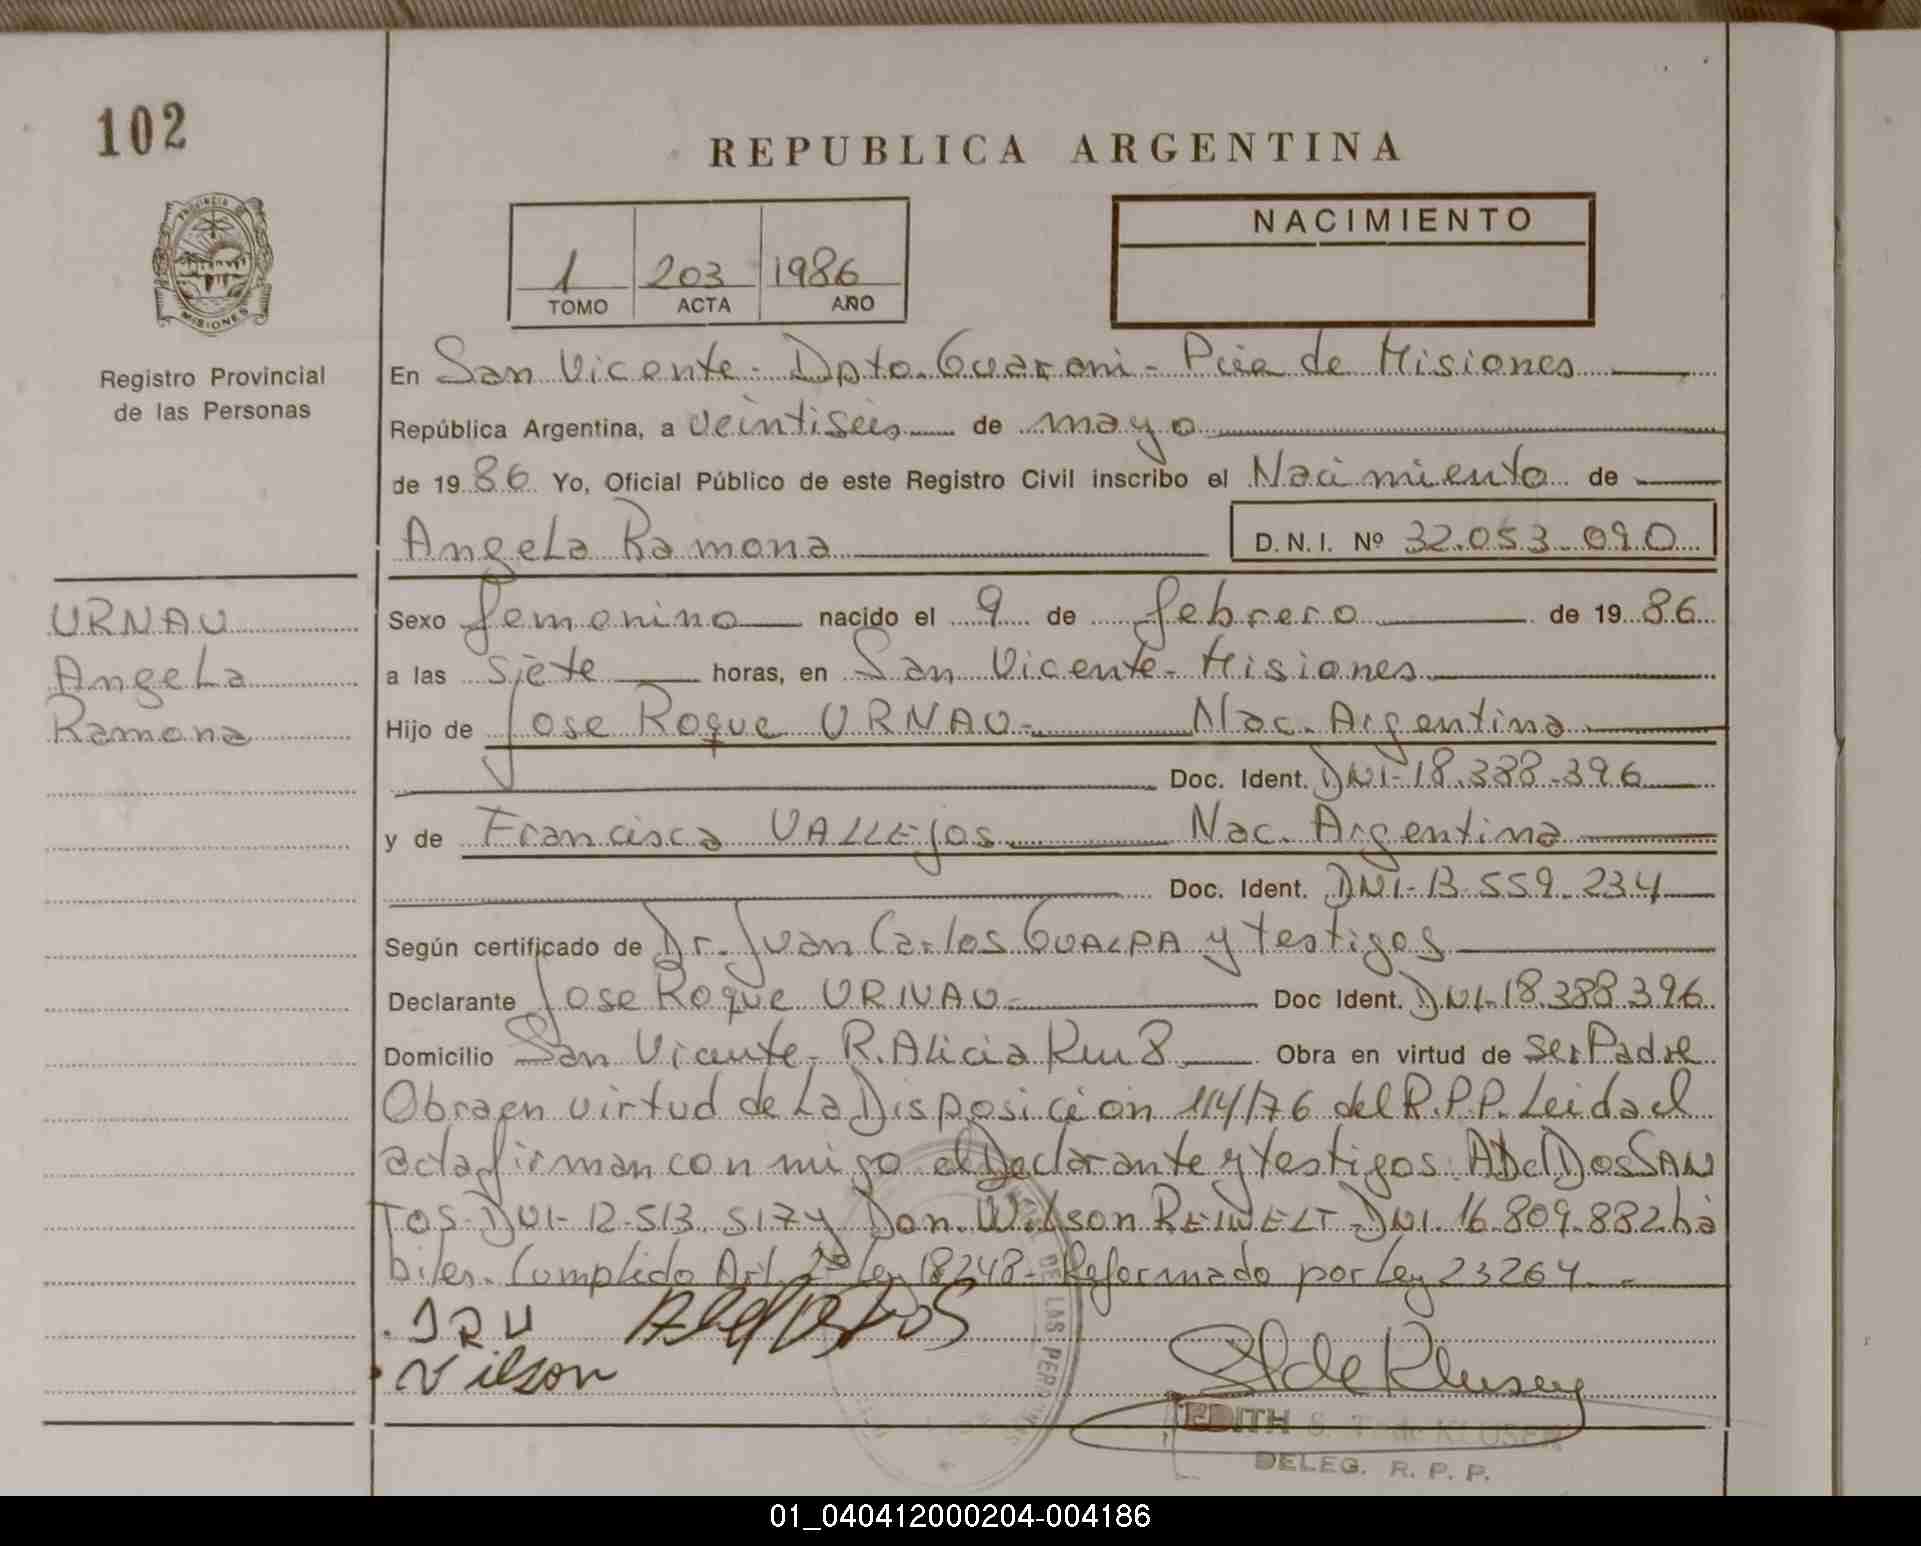 102
REPUBLICA ARGENTINA
NACIMIENTO
1 203 1986
TOMO ACTA AÑO
PROVINCIA DE
MISIONES
Registro Provincial
de las Personas
En San Vicente - Dpto. Guarani - Pcia de Misiones
República Argentina, a veintiseis de mayo
de 1986 Yo, Oficial Público de este Registro Civil inscribo el Nacimiento de
Angela Ramona D.N.I. Nº 32.053.090
URNAU
Angela
Ramona
Sexo femenino nacido el 9 de febrero de 1986
a las siete horas, en San Vicente - Misiones
Hijo de Jose Roque URNAU - Nac. Argentina
Doc. Ident. DNI-18.388.396
y de Francisca VALLEjos Nac. Argentina
Doc. Ident. DNI-13.559.234
Según certificado de Dr. Juan Carlos GUALPA y testigos
Declarante Jose Roque URNAU - Doc Ident. DNI-18.388.396
Domicilio San Vicente - R. Alicia Km 8 Obra en virtud de ser Padre
Obra en virtud de La Disposición 114/76 del R.P.P. Leida el
acta firman con migo el Declarante y testigos: Abel Dos SAN
TOS - DNI - 12.513.517 y Don Wilson REIWELT DNI. 16.809.882 há
biles. Cumplido Art. 2º Ley 18248 - Reformado por Ley 23264 -
JRU
Vilson
DE LAS PERSONAS
EDITH S. T. de KLUSEN
DELEG. R. P. P.
01_040412000204-004186